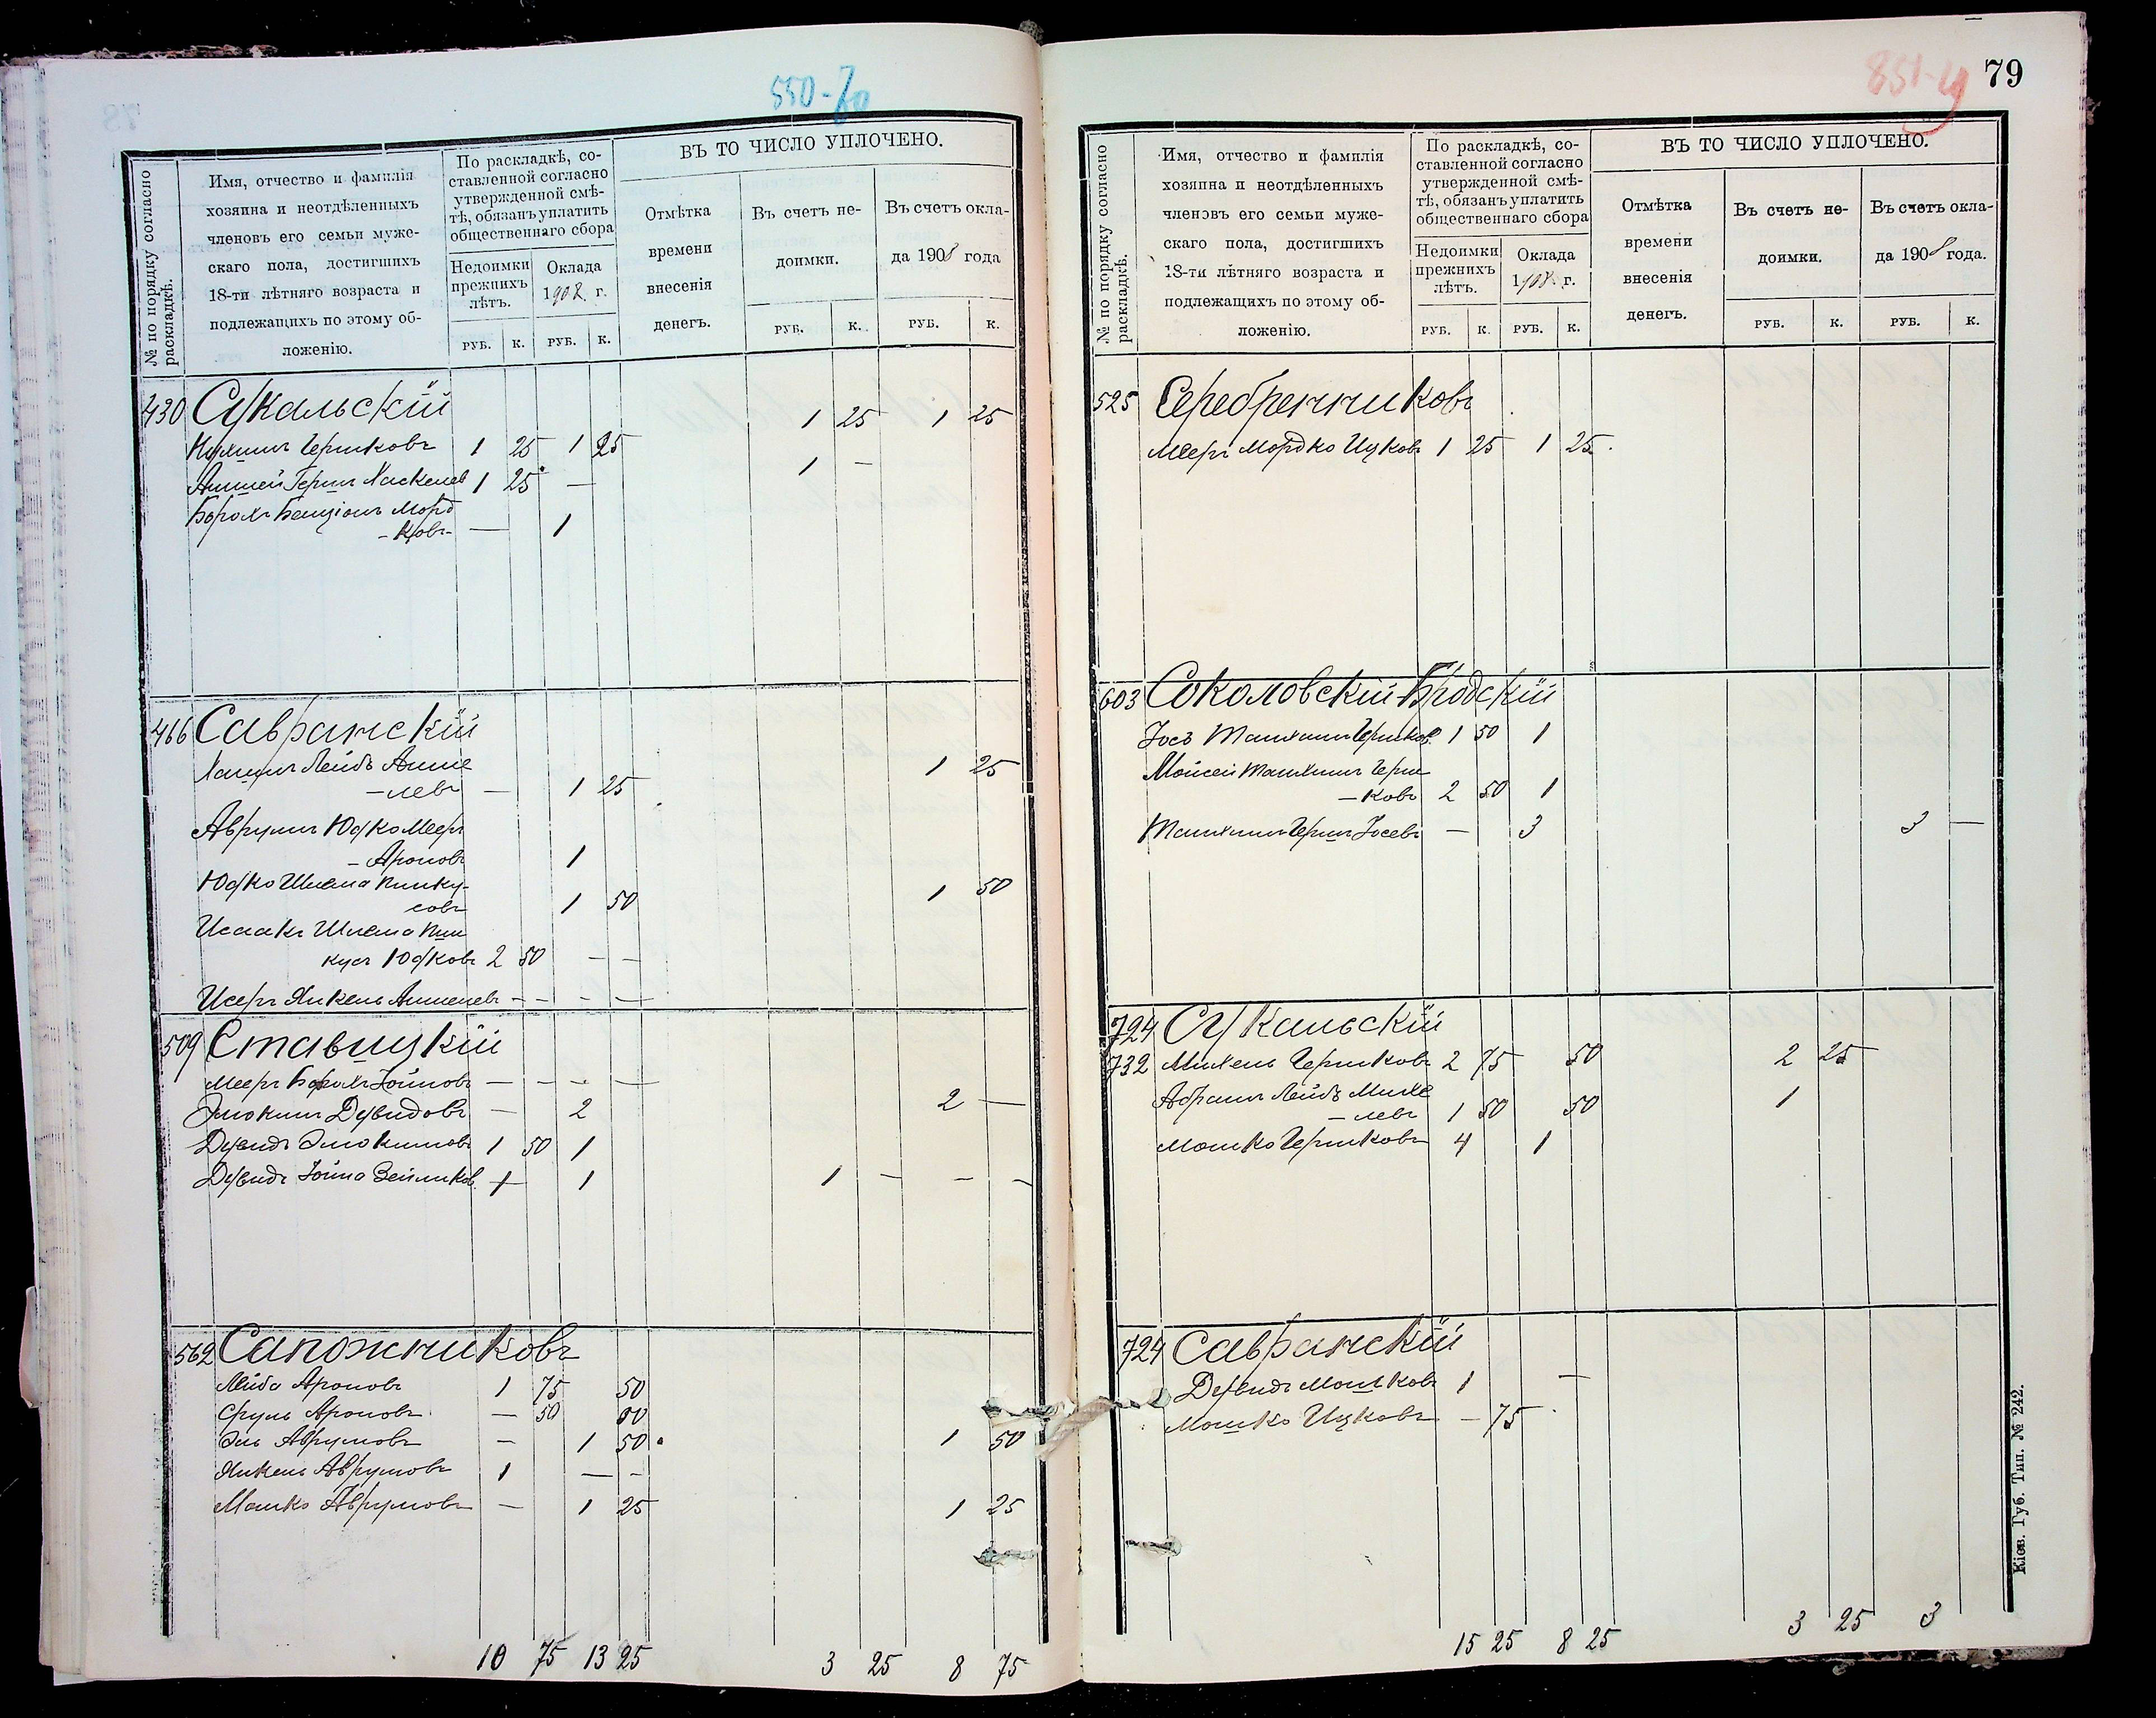 550-70
№ по порядку согласно
раскладкѣ.
Имя, отчество и фамилія
хозяина и неотдѣленныхъ
членовъ его семьи муже-
скаго пола, достигшихъ
18-ти лѣтняго возраста и
подлежащихъ по этому об-
ложенію.
По раскладкѣ, со-
ставленной согласно
утвержденной смѣ-
тѣ, обязанъ уплатить
общественнаго сбора
Недоимки
прежнихъ
лѣтъ.
Оклада
1908 г.
РУБ. К. РУБ. К.
ВЪ ТО ЧИСЛО УПЛОЧЕНО.
Отмѣтка
времени
внесенія
денегъ.
Въ счетъ не-
доимки.
Въ счетъ окла-
да 1908 года
РУБ. К. РУБ. К.
430 Сукальскій 1 25 1 25
Нухимъ Гершковъ 1 25 1 25
Аншей Гершъ Хаскелев 1 25 — 1 —
Борохъ Бенціонъ Морд
-ковъ- — 1
466 Савранскій
Лейбъ Анше
-левъ — 1 25 1 25
Аврумъ Юдко Мееръ
-Ароновъ 1
Юдко Шлема Пинку-
совъ 1 50 1 50
Исаакъ Шлема Пин
кусъ Юдковъ 2 50 — —
Исеръ Янкель Аншелевъ - - - —
509 Ставицкій
Мееръ Борохъ Іойновъ — - - —
Элюкимъ Дувидовъ — 2 2 —
Дувидъ Элюкимовъ 1 50 1
Дувидъ Іойна Зейликов. 1 1 1 — - -
562 Сапожниковъ
Лейба Ароновъ 1 75 50
Сруль Ароновъ — 50 00
Эль Аврумовъ — 1 50 1 50
Янкель Аврумовъ 1 — -
Мошко Аврумовъ — 1 25 1 25
10 75 13 25 3 25 8 75
79
№ по порядку согласно
раскладкѣ.
Имя, отчество и фамилія
хозяина и неотдѣленныхъ
членовъ его семьи муже-
скаго пола, достигшихъ
18-ти лѣтняго возраста и
подлежащихъ по этому об-
ложенію.
По раскладкѣ, со-
ставленной согласно
утвержденной смѣ-
тѣ, обязанъ уплатить
общественнаго сбора
Недоимки
прежнихъ
лѣтъ.
Оклада
1908 г.
РУБ. К. РУБ. К.
ВЪ ТО ЧИСЛО УПЛОЧЕНО.
Отмѣтка
времени
внесенія
денегъ.
Въ счетъ не-
доимки.
Въ счетъ окла-
да 1908 года.
РУБ. К. РУБ. К.
525 Серебренниковъ
Мееръ Мордко Ицковъ 1 25 1 25
603 Соколовскій-Бродскій
Іосъ Танхимъ Гершков. 1 50 1
Мойсей Танхимъ Герш
-ковъ 2 50 1
Танхимъ Гершъ Іосевъ — 3 3 —
724 Сукальскій
732 Михель Гершковъ 2 75 50 2 25
Абрамъ Лейбъ Михе
-левъ 1 50 50 1
Мошко Гершковъ 4 1
724 Савранскій
Дувидъ Мошковъ 1 —
Мошко Ицковъ - 75
15 25 8 25 3 25 3
Кіев. Губ. Тип. № 242.